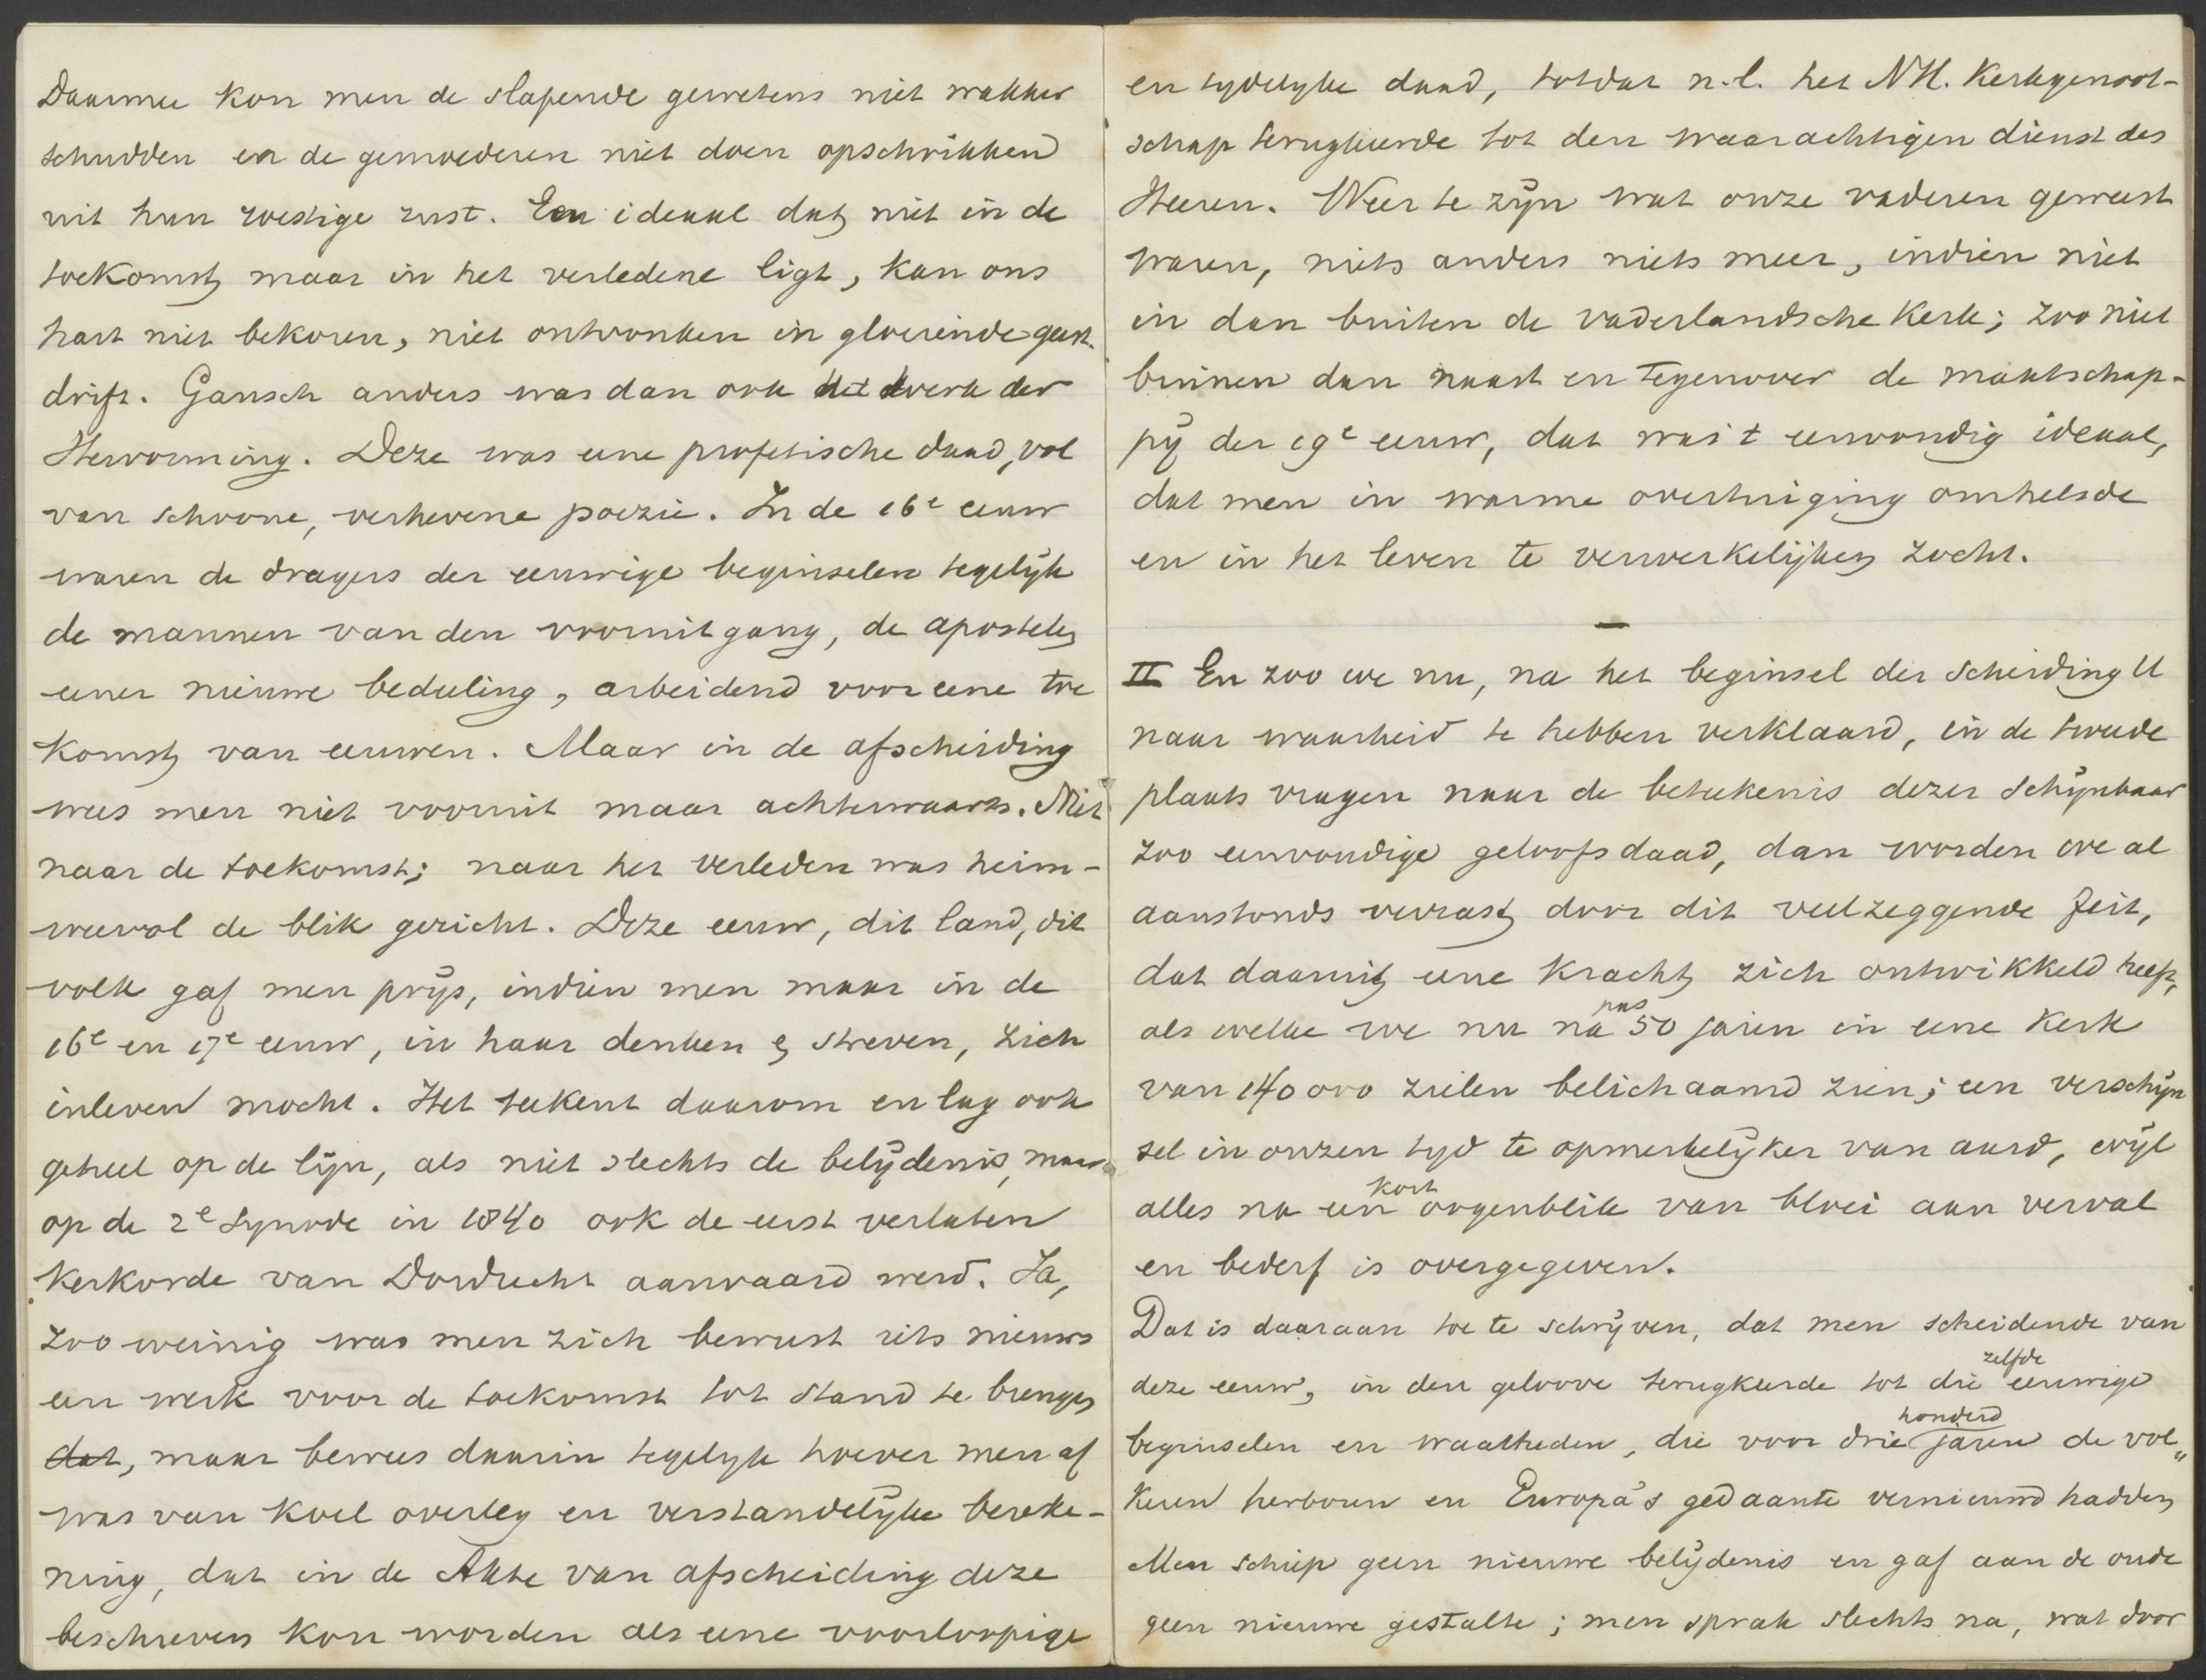 Daarmee kon men de slapende gewetens niet wakker
schudden en de gemoederen niet doen opschrikken
uit hun roestige rust. Een ideaal dat niet in de
toekomst maar in het verledene ligt, kan ons
hart niet bekoren, niet ontvonken in gloeiende geest-
drift. Gansch anders was dan ook het werk der
Hervorming. Deze was eene profetische daad, vol
van schoone, verhevene poezie. In de 16e eeuw
waren de dragers der eeuwige beginselen tegelijk
de mannen van den vooruitgang, de apostelen
eener nieuwe bedeeling, arbeidend voor eene toe
komst van eeuwen. Maar in de afscheiding
wees men niet vooruit maar achterwaarts. Niet
naar de toekomst; naar het verleden was heim-
weevol de blik gericht. Deze eeuw, dit land, dit
volk gaf men prijs, indien men maar in de
16e en 17e eeuw, in haar denken & streven, zich
inleven mocht. Het teekent daarom en lag ook
geheel op de lijn, als niet slechts de belijdenis, maar
op de 2e Synode in 1840 ook de eerst verlaten
Kerkorde van Dordrecht aanvaard werd. Ja,
zoo weinig was men zich bewust iets nieuws
een werk voor de toekomst tot stand te brengen
dat, maar bewees daarin tegelijk hoever men af
was van koel overleg en verstandelijke bereke-
ning, dat in de Akte van afscheiding deze
beschreven kon worden als eene voorloopige
en tydelyke daad, totdat n.l. het NH. Kerkgenoot-
schap terugkeerde tot den waarachtigen dienst des
Heeren. Weer te zijn wat onze vaderen geweest
waren, niets anders niets meer, indien niet
in dan buiten de vaderlandsche Kerk; zoo niet
binnen dan naast en tegenover de maatschap-
pij der 19e eeuw, dat was 't eenvoudig ideaal,
dat men in warme overtuiging omhelsde
en in het leven te verwerkelijken zocht.
II En zoo we nu, na het beginsel der Scheiding
naar waarheid te hebben verklaard, in de tweede
plaats vragen naar de beteekenis dezer schijnbaar
zoo eenvoudige geloofsdaad, dan worden we al
aanstonds verrast door dit veelzeggende feit,
dat daaruit eene Kracht zich ontwikkeld heeft,
als welke we nu na pas 50 jaren in eene Kerk
van 140 000 zielen belichaamd zien; een verschijn
sel in onzen tijd te opmerkelijker van aard, wijl
alles na een kort oogenblik van bloei aan verval
en bederf is overgegeven.
Dat is daaraan toe te schrijven, dat men scheidende van
deze eeuw, in den geloove terugkeerde tot die zelfde eeuwige
beginselen en waarheden, die voor drie honderd jaren de vol„
keren herboren en Europa's gedaante vernieuwd hadden
Men schiep geen nieuwe belijdenis en gaf aan de oude
geen nieuwe gestalte; men sprak slechts na, wat door